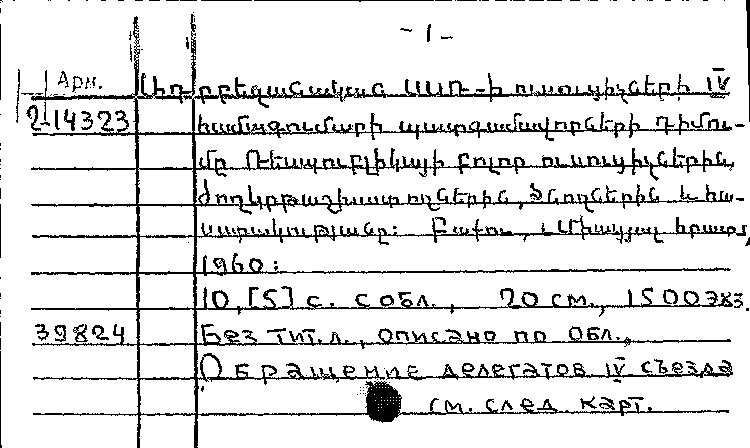 - 1 -
Арм. Ադրբեջանական ՍՍՌ-ի ուսուցիչների IV
2-14323 համագումարի պատգամավորների դիմու-
մը Ռեսպուբլիկայի բոլոր ուսուցիչներին,
ժողկրթաշխատողներին, ծնողներին և հա-
սարակությանը: Բաքու, «Միացյալ հրատ»,
1960:
10, [5] с. с обл., 20 см., 1500 экз.
39824 Без тит. л., описано по обл.,
Обращение делегатов IV съезда
см. след. карт.